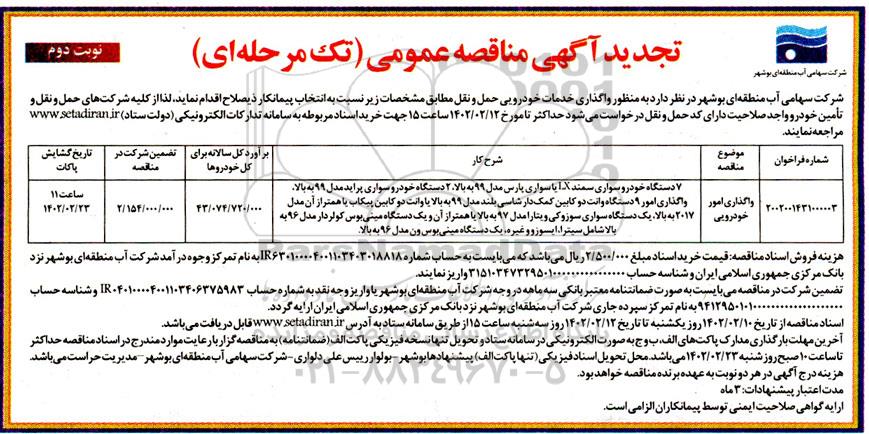 تجدید آگهی مناقصه عمومی (تک مرحله‌ای)
نوبت دوم
شرکت سهامی آب منطقه‌ای بوشهر
شرکت سهامی آب منطقه‌ای بوشهر در نظر دارد به منظور واگذاری خدمات خودرویی حمل و نقل مطابق مشخصات زیر نسبت به انتخاب پیمانکار ذیصلاح اقدام نماید، لذا از کلیه شرکت‌های حمل و نقل و
تأمین خودرو واجد صلاحیت دارای کد حمل و نقل درخواست می‌شود حداکثر تا مورخ ۱۴۰۲/۰۲/۱۲ ساعت ۱۵ جهت خرید اسناد مربوطه به سامانه تدارکات الکترونیکی (دولت ستاد) www.setadiran.ir
مراجعه نمایند.
شماره فراخوان
موضوع مناقصه
شرح کار
برآورد کل سالانه برای کل خودروها
تضمین شرکت در مناقصه
تاریخ گشایش پاکات
۲۰۰۲۰۰۱۴۳۱۰۰۰۰۰۳
واگذاری امور خودرویی
۷ دستگاه خودرو سواری سمند LX یا سواری پارس مدل ۹۹ به بالا، ۲ دستگاه خودرو سواری پراید مدل ۹۹ به بالا،
واگذاری امور ۹ دستگاه وانت دو کابین کمک دار شاسی بلند مدل ۹۹ به بالا یا وانت دو کابین پیکاپ یا همتراز آن مدل
۲۰۱۷ به بالا، یک دستگاه سواری سوزوکی ویتارا مدل ۹۷ به بالا یا همتراز آن و یک دستگاه مینی‌بوس کولردار مدل ۹۶ به
بالا شامل سیترا، ایسوزو و غیره، یک دستگاه مینی‌بوس ون مدل ۹۶ به بالا.
۴۳/۰۷۴/۷۲۰/۰۰۰
۲/۱۵۴/۰۰۰/۰۰۰
ساعت ۱۱
۱۴۰۲/۰۲/۲۳
هزینه فروش اسناد مناقصه: قیمت خرید اسناد مبلغ ۲/۵۰۰/۰۰۰ ریال می‌باشد که می‌بایست به حساب شماره IR۶۳۰۱۰۰۰۰۴۰۰۱۱۰۳۴۰۳۰۱۸۸۱۸ به نام تمرکز وجوه درآمد شرکت آب منطقه‌ای بوشهر نزد
بانک مرکزی جمهوری اسلامی ایران و شناسه حساب واریز نمایند.
تضمین شرکت در مناقصه می‌بایست به صورت ضمانتنامه معتبر بانکی سه ماهه در وجه شرکت آب منطقه‌ای بوشهر یا واریز وجه نقد به شماره حساب IR۰۴۰۱۰۰۰۰۴۰۰۱۱۰۳۴۰۶۳۷۵۹۸۳ و شناسه حساب
به نام تمرکز سپرده جاری شرکت آب منطقه‌ای بوشهر نزد بانک مرکزی جمهوری اسلامی ایران ارایه گردد.
اسناد مناقصه از تاریخ ۱۴۰۲/۰۲/۱۰ روز یکشنبه تا تاریخ ۱۴۰۲/۰۲/۱۲ روز سه‌شنبه ساعت ۱۵ از طریق سامانه ستاد به آدرس www.setadiran.ir قابل دریافت می‌باشد.
آخرین مهلت بارگذاری مدارک پاکت‌های الف، ب و ج به صورت الکترونیکی در سامانه ستاد و تحویل تنها نسخه فیزیکی پاکت الف (ضمانتنامه) به مناقصه گزار با رعایت موارد مندرج در اسناد مناقصه حداکثر
تا ساعت ۱۰ صبح روز شنبه ۱۴۰۲/۰۲/۲۳ می‌باشد. محل تحویل اسناد فیزیکی (تنها پاکت الف) پیشنهادها بوشهر - بولوار رییس علی دلواری - شرکت سهامی آب منطقه‌ای بوشهر - مدیریت حراست می‌باشد.
هزینه درج آگهی در هر دو نوبت به عهده برنده مناقصه خواهد بود.
مدت اعتبار پیشنهادات: ۳ ماه
ارایه گواهی صلاحیت ایمنی توسط پیمانکاران الزامی است.
ParsNamadData
۰۲۱-۸۸۳۴۹۶۷۰-۵